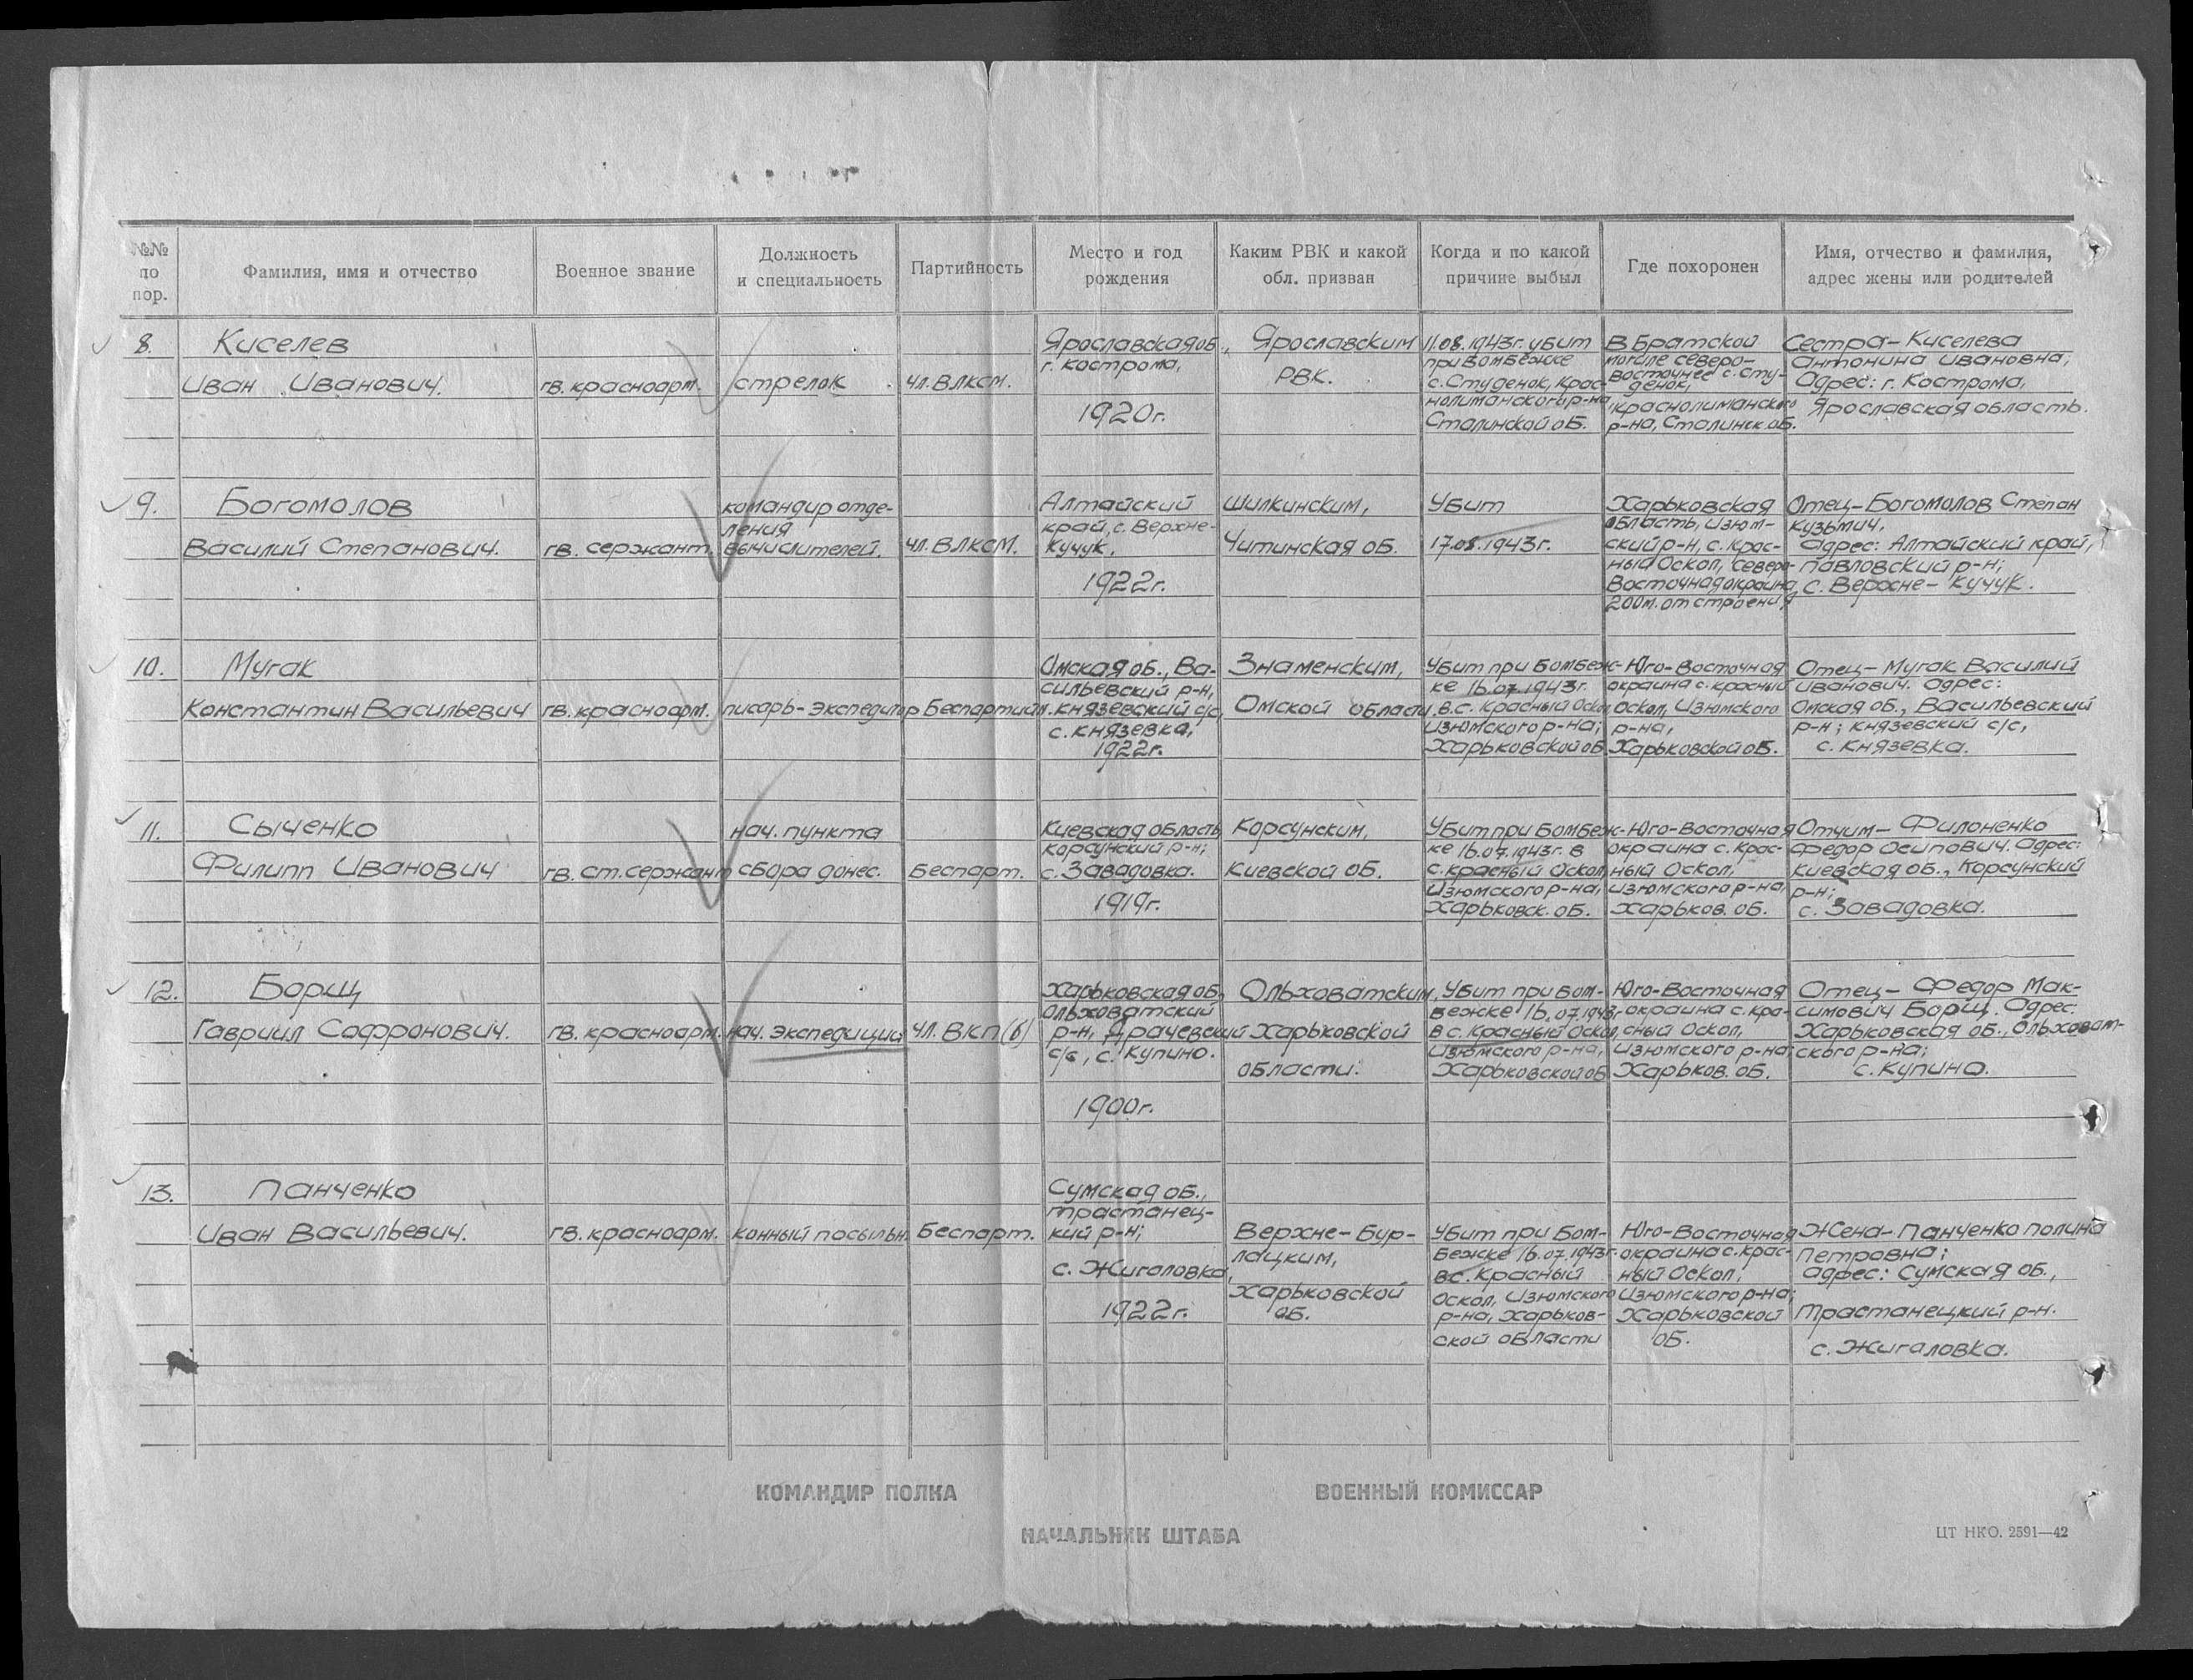 №№ по пор.
Фамилия, имя и отчество
Военное звание
Должность и специальность
Партийность
Место и год рождения
Каким РВК и какой обл. призван
Когда и по какой причине выбыл
Где похоронен
Имя, отчество и фамилия, адрес жены или родителей
8.
Киселев
Иван Иванович.
гв. красноарм.
стрелок
чл. ВЛКСМ.
Ярославская об.,
г. Кострома,
1920г.
Ярославским
РВК.
11.08.1943г. убит
при бомбежке
с. Студенок, Крас-
нолиманского р-на,
Сталинской об.
В Братской
могиле северо-
восточнее с. Сту-
денок,
Краснолиманского
р-на, Сталинск. об.
Сестра – Киселева
Антонина Ивановна,
Адрес: г. Кострома,
Ярославская область.
9.
Богомолов
Василий Степанович.
гв. сержант.
командир отде-
ления
вычислителей.
чл. ВЛКСМ.
Алтайский
край, с. Верхне-
Кучук,
1922г.
Шилкинским,
Читинская об.
Убит
17.08.1943г.
Харьковская
область, Изюм-
ский р-н, с. Крас-
ный Оскол, северо-
восточная окраина,
200м. от строения
Отец – Богомолов Степан
Кузьмич.
Адрес: Алтайский край,
Павловский р-н;
с. Верхне – Кучук.
10.
Мугак
Константин Васильевич
гв. красноарм.
писарь-экспедитор
Беспартийн.
Омская об., Ва-
сильевский р-н,
Князевский с/с,
с. Князевка,
1922г.
Знаменским,
Омской области,
Убит при бомбеж-
ке 16.07.1943г.
в с. Красный Оскол
Изюмского р-на;
Харьковской об
Юго-Восточная
окраина с. Красный
Оскол, Изюмского
р-на,
Харьковской об.
Отец – Мугак Василий
Иванович. Адрес:
Омская об., Васильевский
р-н; Князевский с/с,
с. Князевка.
11.
Сыченко
Филипп Иванович
гв. ст. сержант
нач. пункта
сбора донес.
Беспарт.
Киевская область
Корсунский р-н;
с. Завадовка.
1919г.
Корсунским,
Киевской об.
Убит при бомбеж-
ке 16.07.1943г. в
с. Красный Оскол,
Изюмского р-на,
Харьковск. об.
Юго-Восточная
окраина с. Крас-
ный Оскол,
Изюмского р-на,
Харьков. об.
Отчим – Филоненко
Федор Осипович. Адрес:
Киевская об., Корсунский
р-н;
с. Завадовка.
12.
Борщ
Гавриил Софронович.
гв. красноарм.
нач. экспедиции
чл. ВКП(б)
Харьковская об,
Ольховатский
р-н, Драчевский
с/с, с. Купино.
1900г.
Ольховатским,
Харьковской
области.
Убит при бом-
бежке 16.07.1943г
в с. Красный Оскол,
Изюмского р-на,
Харьковской об
Юго-Восточная
окраина с. Кра-
сный Оскол,
Изюмского р-на;
Харьков. об.
Отец – Федор Мак-
симович Борщ. Адрес:
Харьковская об., Ольховат-
ского р-на;
с. Купино.
13.
Панченко
Иван Васильевич.
гв. красноарм.
конный посыльн.
Беспарт.
Сумская об.,
Трастанец-
кий р-н;
с. Жигаловка,
1922г.
Верхне-Бур-
лацким,
Харьковской
об.
Убит при бом-
бежке 16.07.1943г.
в с. Красный
Оскол, Изюмского
р-на, Харьков-
ской области
Юго-Восточная
окраина с. Крас-
ный Оскол;
Изюмского р-на;
Харьковской
об.
Жена – Панченко Полина
Петровна;
Адрес: Сумская об.,
Трастанецкий р-н.
с. Жигаловка.
КОМАНДИР ПОЛКА
ВОЕННЫЙ КОМИССАР
НАЧАЛЬНИК ШТАБА
ЦТ НКО. 2591—42